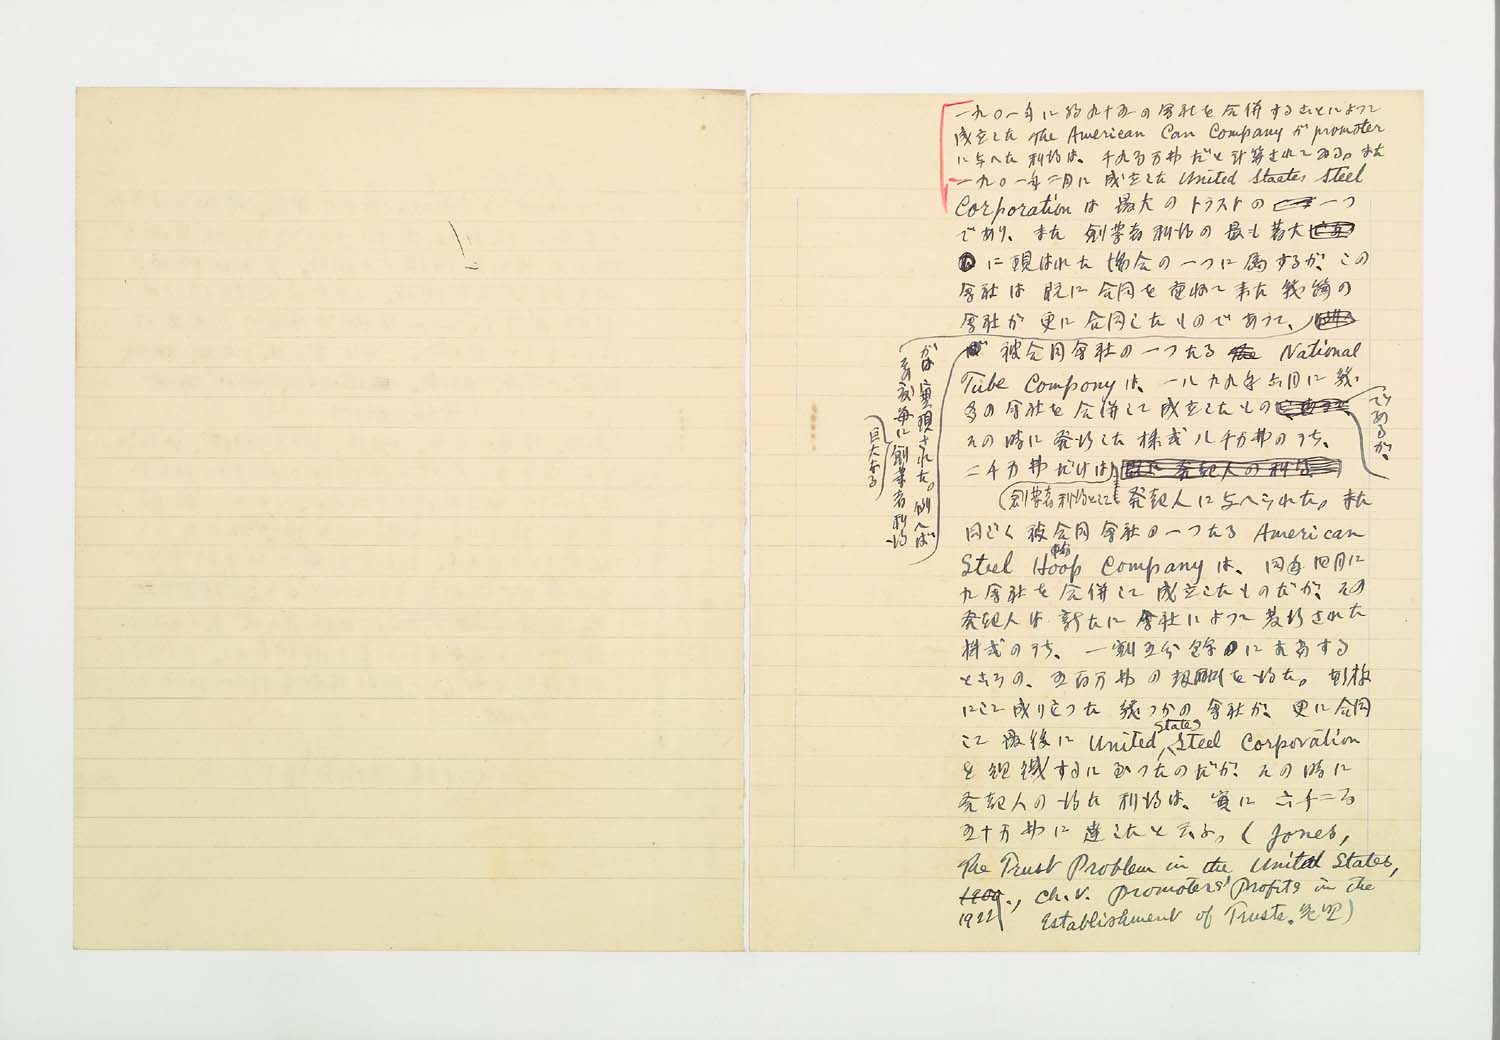 一九〇一年に約九十五の會社を合併することによつて
成立した The American Can Company が promoter
に与へた利得は、千九百万弗だと計算されてゐる。また
一九〇一年二月に成立した United Staetes Steel
Corporation は最大のトラストの一つ
であり、また創業者利得の最も著大
に現はれた場合の一つに属するが、この
會社は既に合同を重ねて来た幾箇の
會社が更に合同したものであつて、
その都度毎に巨大なる創業者利得
がは実現された。例へば
被合同會社の一つたる National
Tube Company は、一八九九年六月に幾
多の會社を合併して成立したものであるが、
その時に発行した株式八千万弗のうち、
二千万弗だけは
創業者利得として発起人に与へられた。また
同じく被合同會社の一つたる American
Steel Hoop Company は、同年四月に
九會社を合併して成立したものだが、その
発起人は新たに會社によつて発行された
株式のうち、一割五分餘に充当する
ところの、五百万弗の報酬を得た。斯様
にして成り立つた幾つかの會社が、更に合同
して最後に United States Steel Corporation
を組織するに至つたのだが、その時に
発起人の得た利得は、実に六千二百
五十万弗に達したと云ふ。( Jones,
The Trust Problem in the United States,
1922, ch. V. Promoters' Profits in the
Establishment of Trusts. 参照)